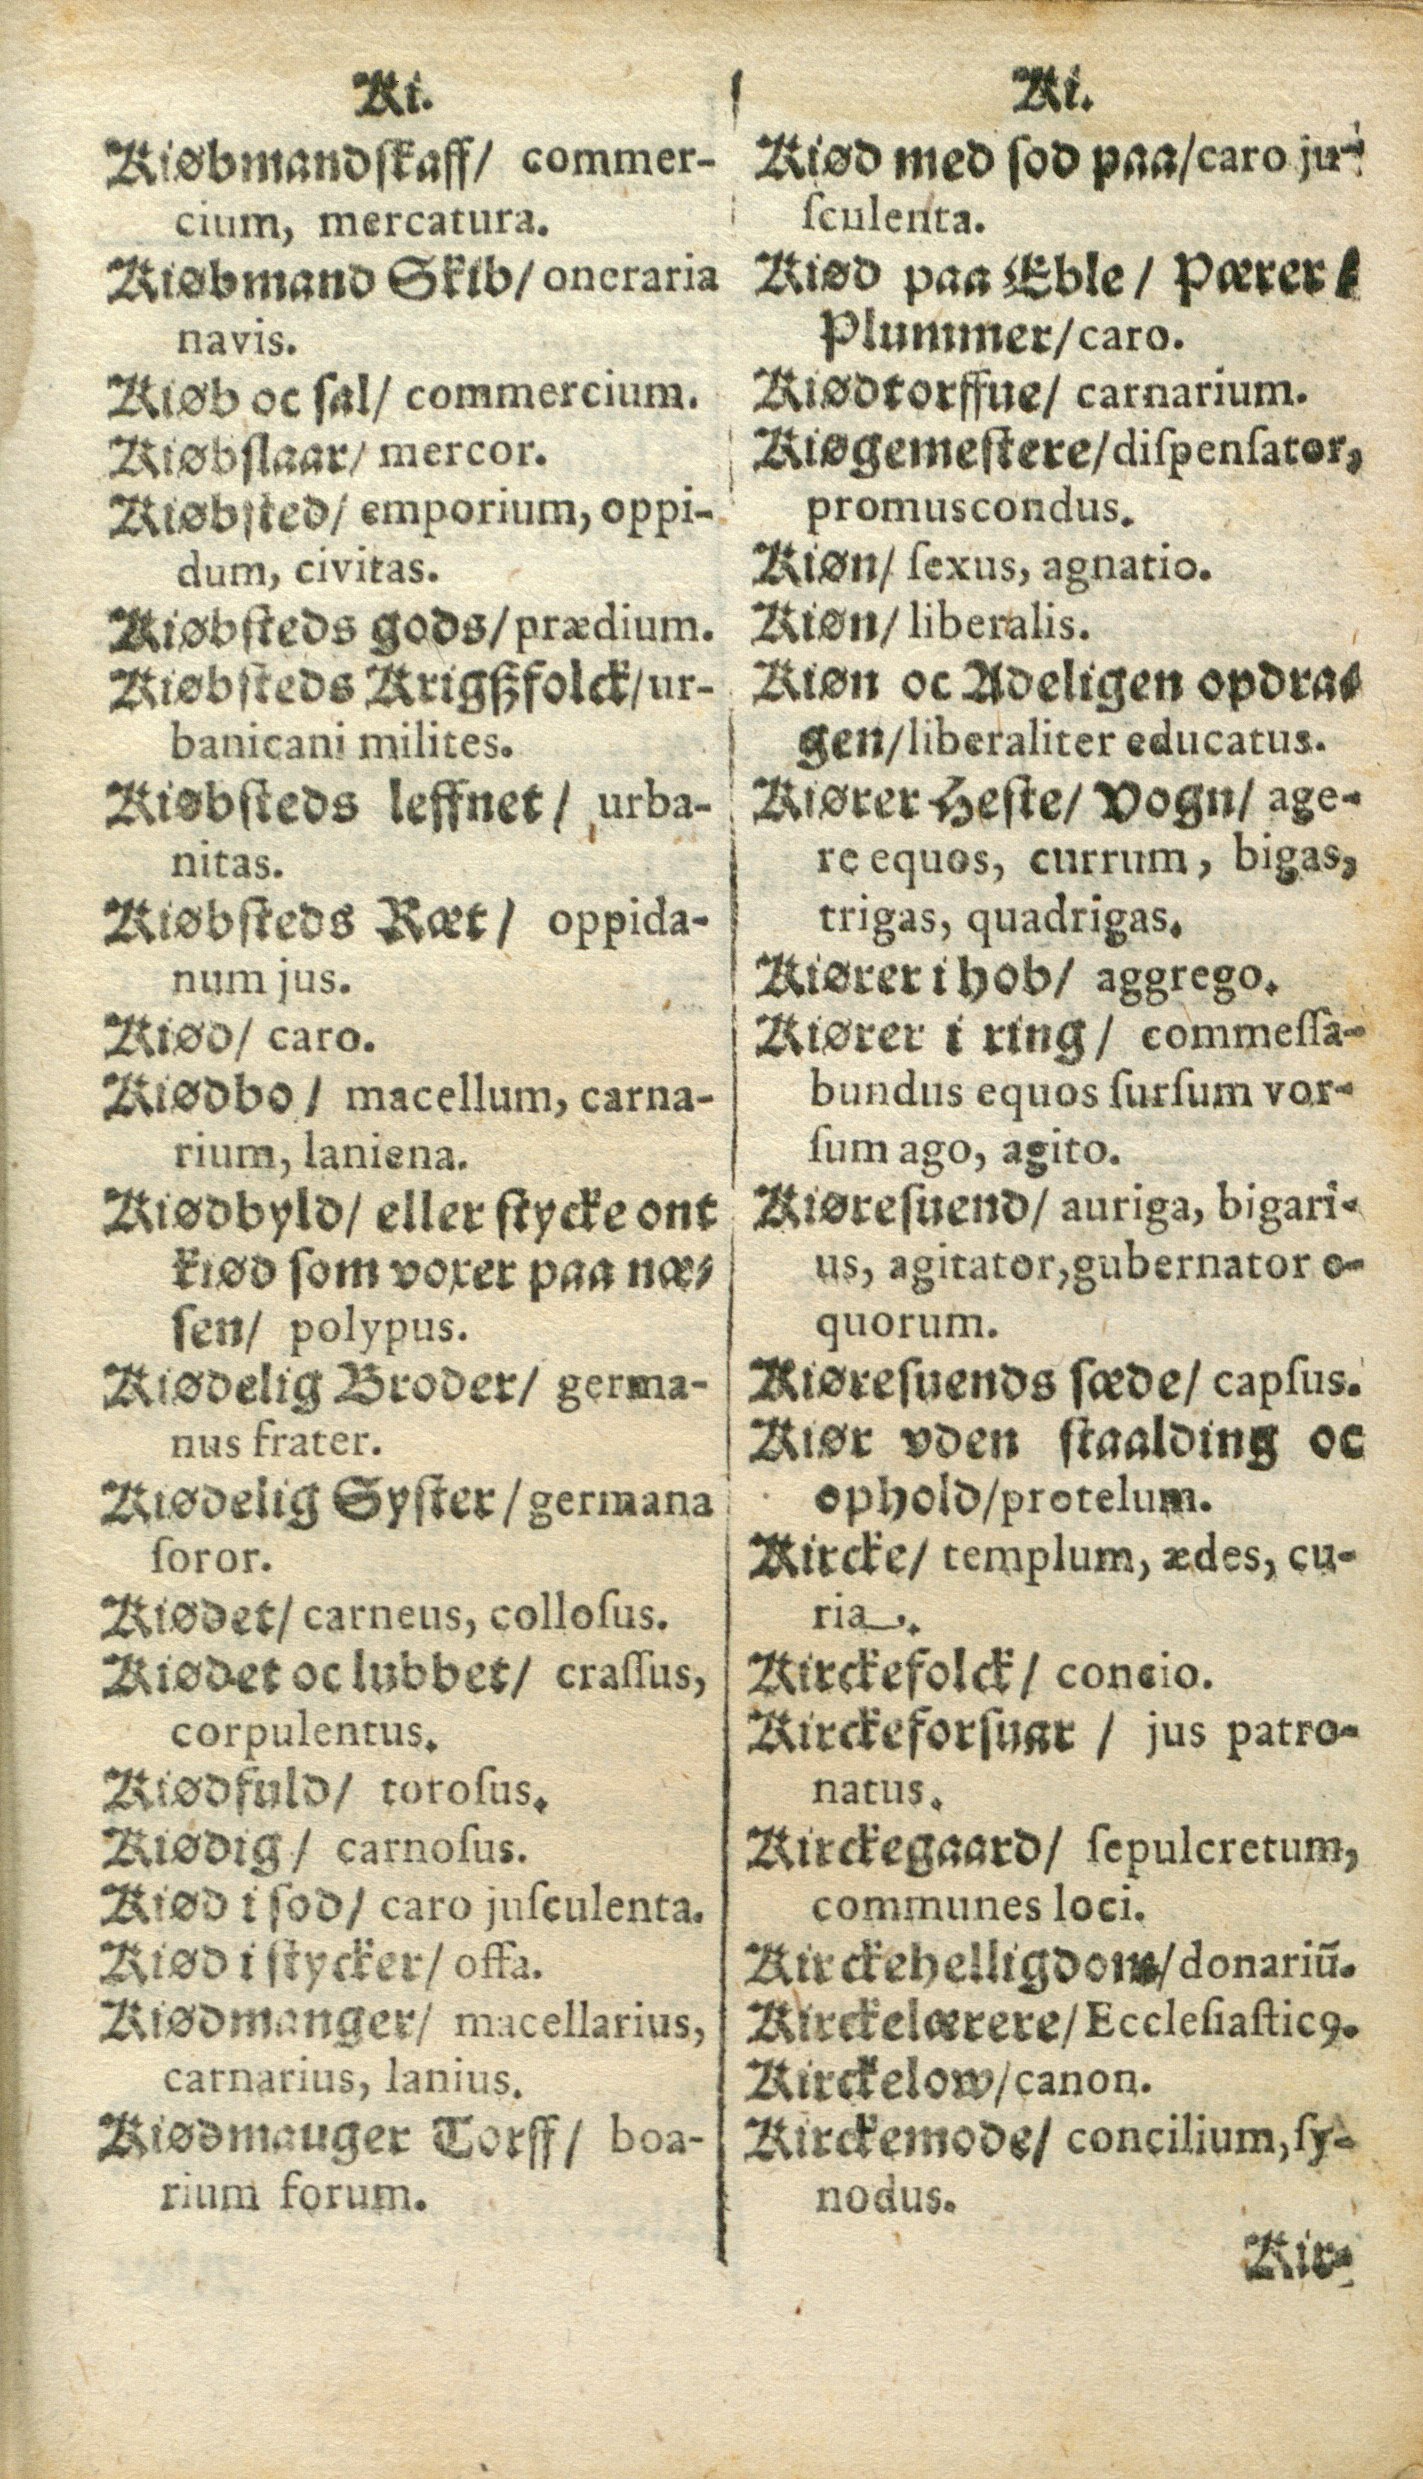 Ki.
Kiøbmandſkaff/ commer-
cium, mercatura.
Kiøbmand Skib/ oneraria
navis.
Kiøb oc ſal/ commercium.
Kiøbſlaar/ mercor.
Kiøbſted/ emporium, oppi-
dum, civitas.
Kiøbſteds gods/ prædium.
Kiøbſteds Krigßfolck/ ur-
banicani milites.
Kiøbſteds leffnet/ urba-
nitas.
Kiøbſteds Ræt/ oppida-
num jus.
Kiød/ caro.
Kiødbo/ macellum, carna-
rium, laniena.
Kiødbyld/ eller ſtycke ont
kiød ſom voxer paa næ-
ſen/ polypus.
Kiødelig Broder/ germa-
nus frater.
Kiødelig Syſter/ germana
ſoror.
Kiødet/ carneus, colloſus.
Kiødet oc lubbet/ craſſus,
corpulentus.
Kiødfuld/ toroſus.
Kiødig/ carnoſus.
Kiød i ſod/ caro juſculenta.
Kiød i ſtycker/ offa.
Kiødmanger/ macellarius,
carnarius, lanius.
Kiødmauger Torff/ boa-
rium forum.
Ki.
Kiød med ſod paa/ caro ju-
ſculenta.
Kiød paa Æble/ Pærer/
Plummer/ caro.
Kiødtorffue/ carnarium.
Kiøgemeſtere/ diſpenſator,
promuscondus.
Kiøn/ ſexus, agnatio.
Kiøn/ liberalis.
Kiøn oc Adeligen opdra-
gen/ liberaliter educatus.
Kiører Heſte/ Vogn/ age-
re equos, currum, bigas,
trigas, quadrigas.
Kiører i hob/ aggrego.
Kiører i ring/ commeſſa-
bundus equos ſurſum vor-
ſum ago, agito.
Kiøreſuend/ auriga, bigari-
us, agitator, gubernator e-
quorum.
Kiøreſuends ſæde/ capſus.
Kiør vden ſtaalding oc
ophold/ protelum.
Kircke/ templum, ædes, cu-
ria.
Kirckefolck/ concio.
Kirckeforſuar/ jus patro-
natus.
Kirckegaard/ ſepulcretum,
communes loci.
Kirckehelligdom/ donariū.
Kirckelærere/ Eccleſiaſticꝰ.
Kirckelow/ canon.
Kirckemode/ concilium, ſy-
nodus.
Kir-